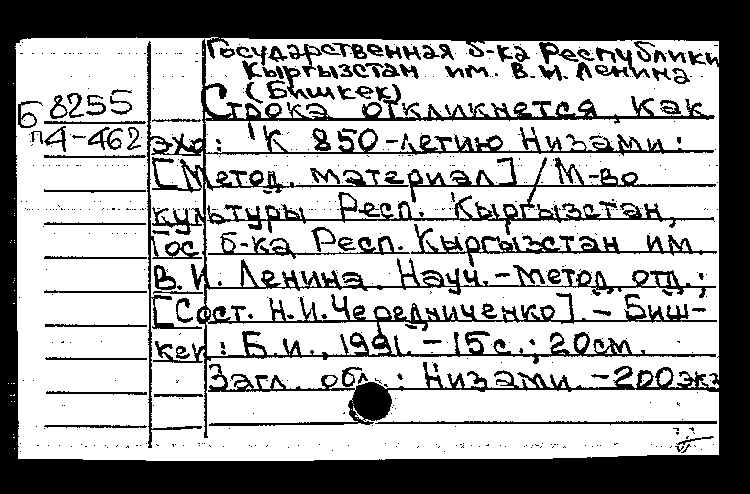 Государственная б-ка Республики
Кыргызстан им. В.И. Ленина
(Бишкек)
Б 8255
п4-462
Строка откликнется, как
эхо: К 850-летию Низами:
[Метод. материал] / М-во
культуры Респ. Кыргызстан,
Гос б-ка Респ. Кыргызстан им.
В.И. Ленина. Науч.-метод. отд.;
[Сост. Н.И.Чередниченко]. - Биш-
кек: Б.и., 1991. - 15с.; 20см.
Загл. обл.: Низами. -200экз